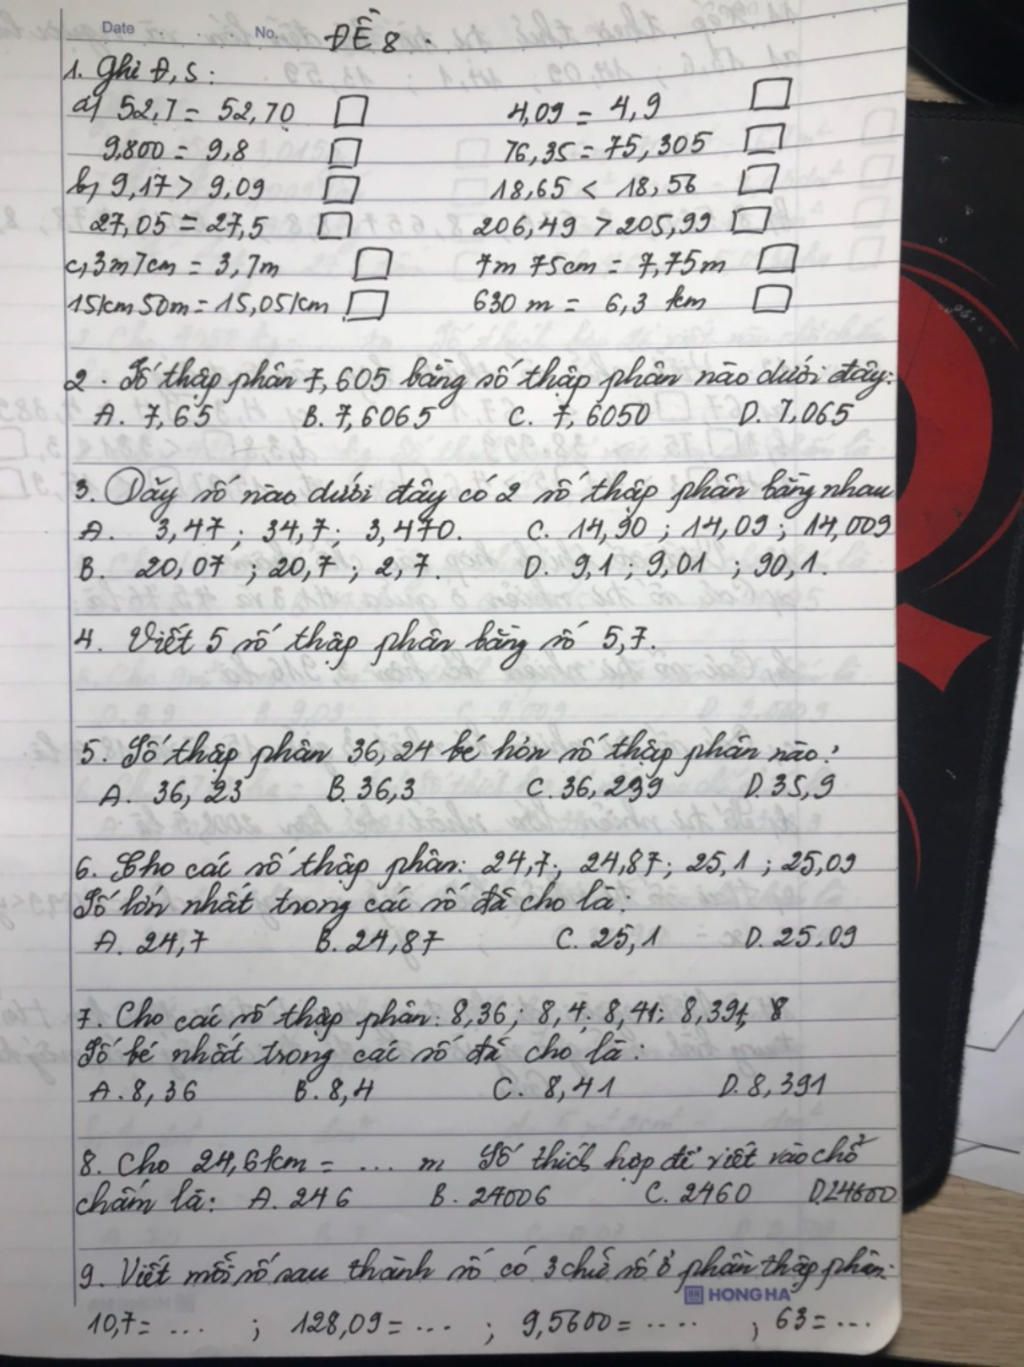 Date No.
ĐỀ 8.
1. Ghi Đ, S:
a) 52,7 = 52,70 4,09 = 4,9
9,800 = 9,8 76,35 = 75,305
b, 9,17 > 9,09 18,65 < 18,56
27,05 = 27,5 206,49 > 205,99
c, 3m7cm = 3,7m 7m 75cm = 7,75m
15km50m = 15,05km 630 m = 6,3 km
2. Số thập phân 7,605 bằng số thập phân nào dưới đây:
A. 7,65 B. 7,6065 C. 7,6050 D. 7.065
3. Dãy số nào dưới đây có 2 số thập phân bằng nhau
A. 3,47 ; 34,7 ; 3,470. C. 14,90 ; 14,09 ; 14,009
B. 20,07 ; 20,7 ; 2,7. D. 9,1 ; 9,01 ; 90,1.
4. Viết 5 số thập phân bằng số 5,7.
5. Số thập phân 36,24 bé hơn số thập phân nào?
A. 36,23 B. 36,3 C. 36,239 D. 35,9
6. Cho các số thập phân: 24,7; 24,87; 25,1 ; 25,09
Số lớn nhất trong các số đã cho là:
A. 24,7 B. 24,87 C. 25,1 D. 25.09
7. Cho các số thập phân: 8,36; 8,4; 8,41; 8,391; 8
Số bé nhất trong các số đã cho là:
A. 8,36 B. 8,4 C. 8,41 D. 8,391
8. Cho 24,6km = ... m Số thích hợp để viết vào chỗ
chấm là: A. 246 B. 24006 C. 2460 D. 24600
9. Viết mỗi số sau thành số có 3 chữ số ở phần thập phân:
HONG HA
10,7 = ... ; 128,09 = ... ; 9,5600 = .... ; 63 = ...